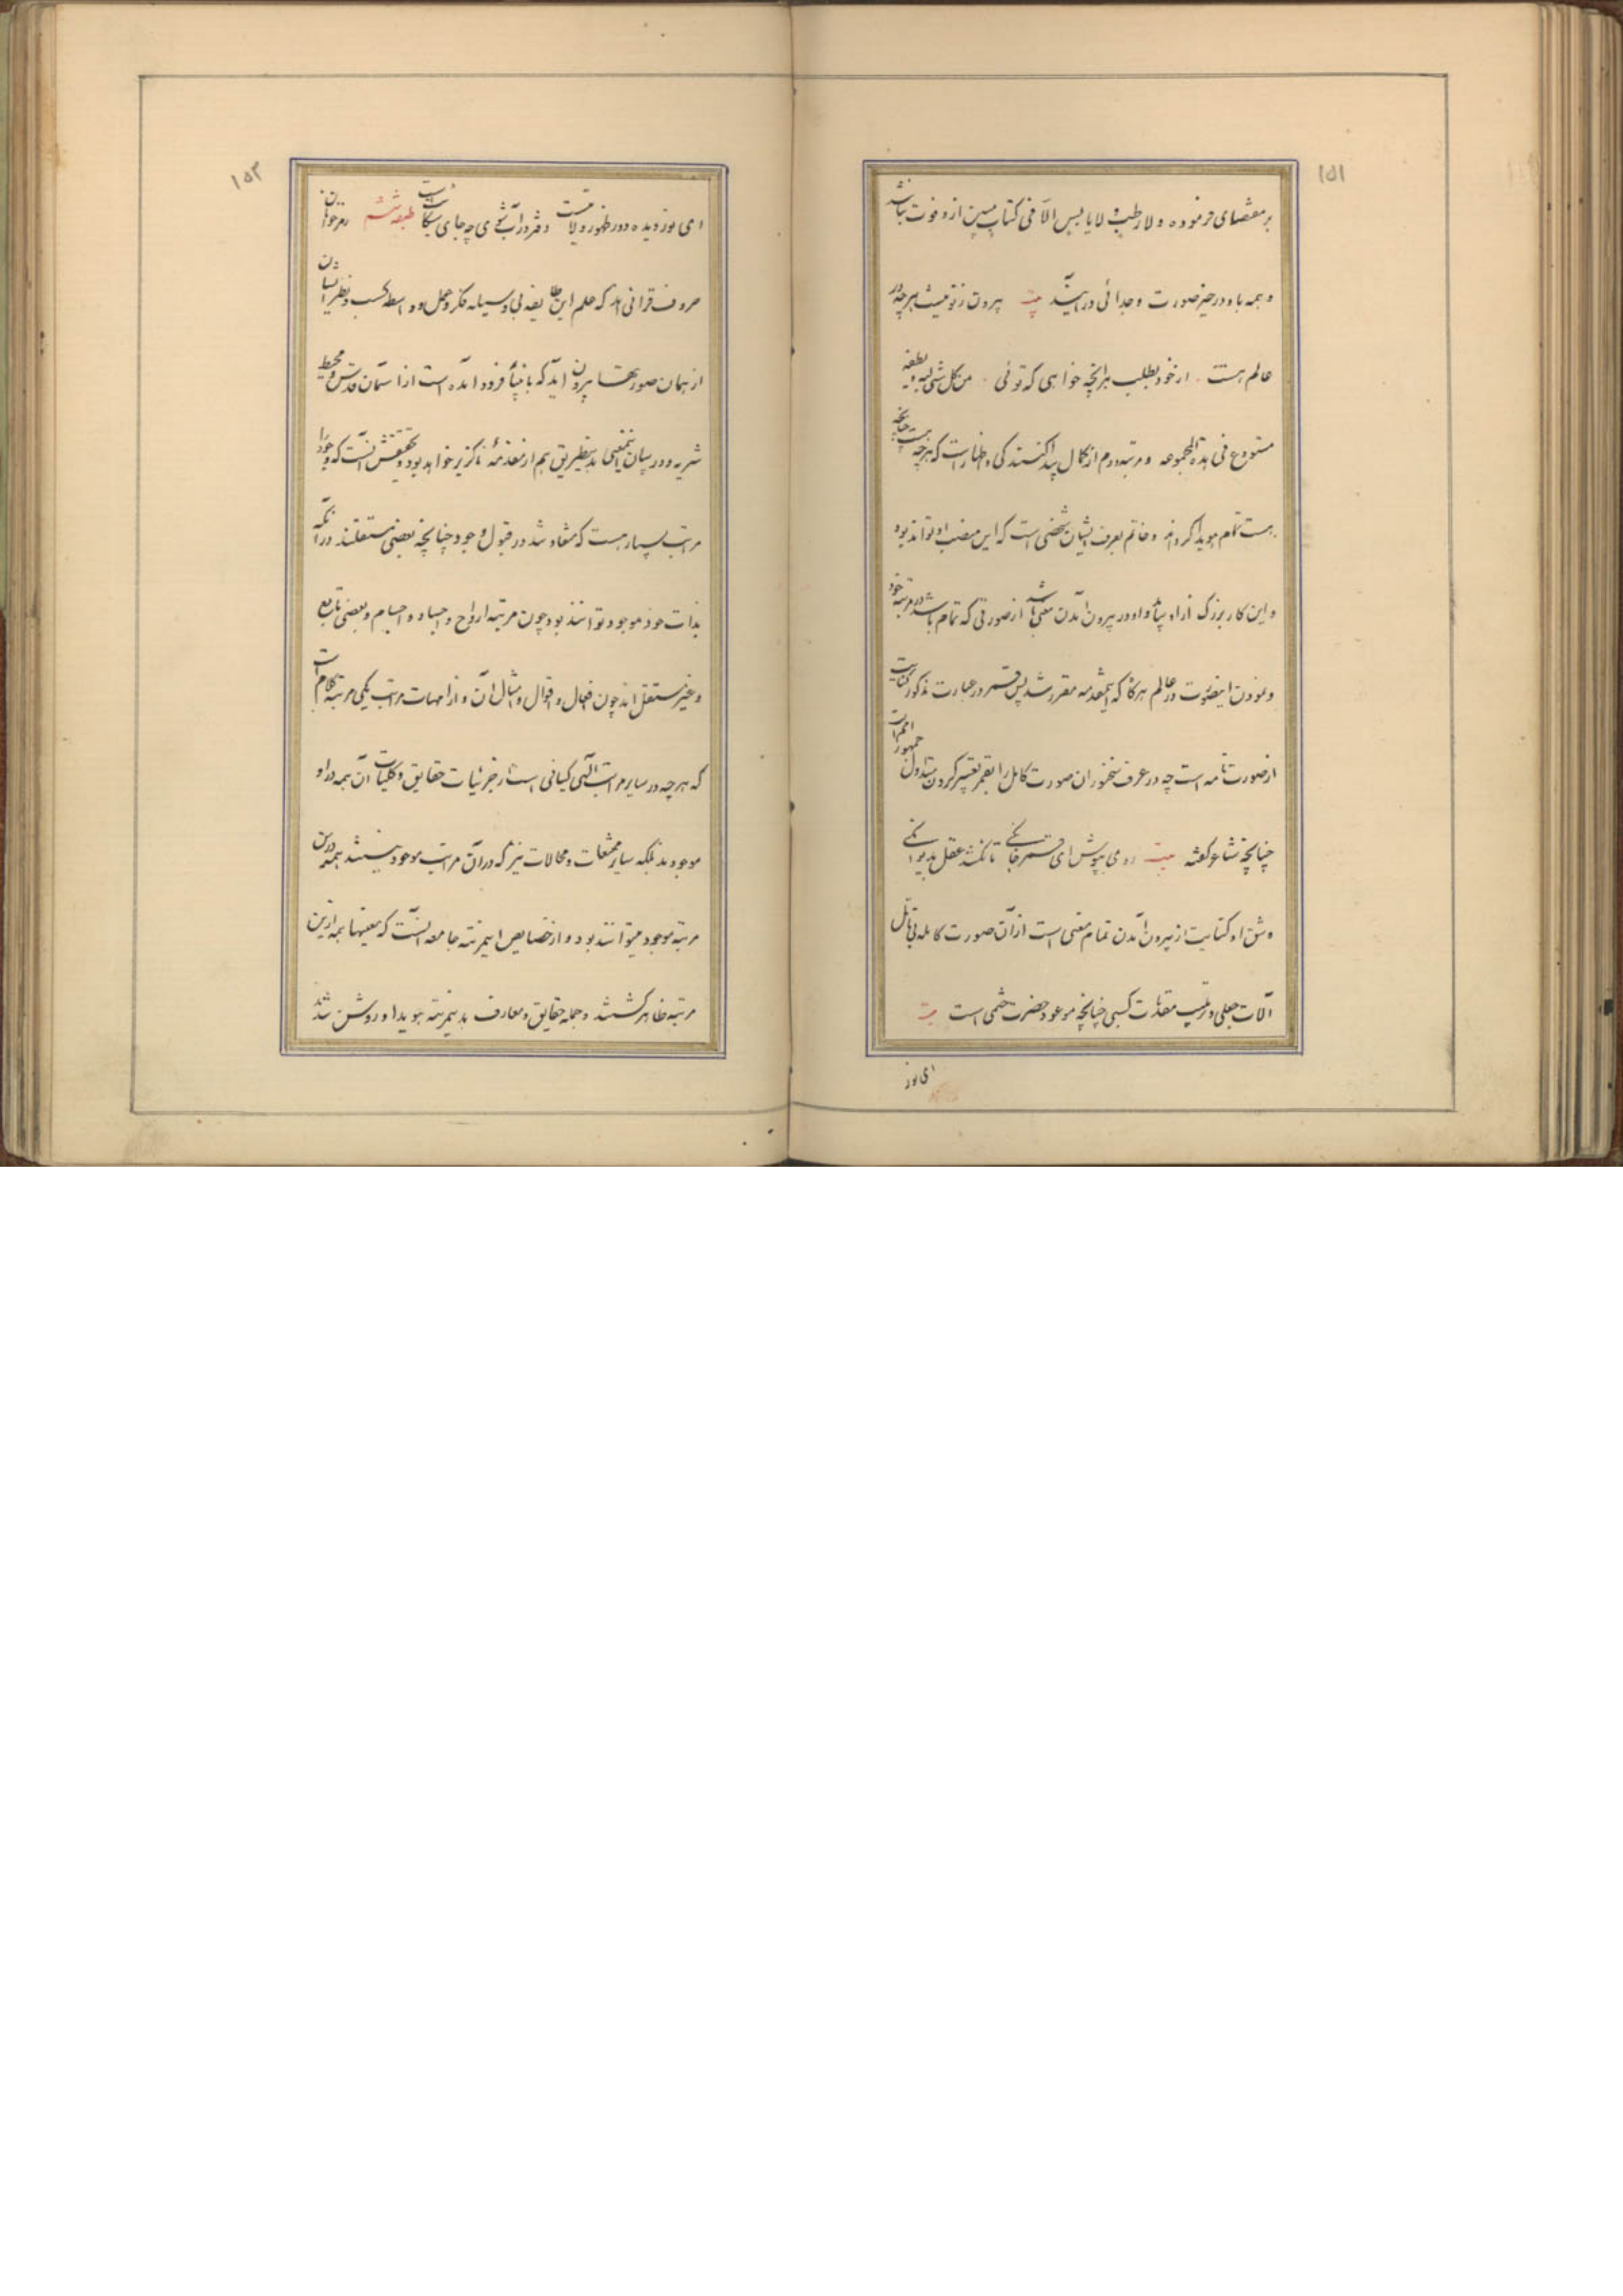 ۱۵۱
بر مقتضای فرموده و لا رطب و لا یابس الا فی کتاب مبین ازو فوت نباشد
و همه باو در حیز صورت وحدانی در آیند بیت بیرون ز تو نیست هر چه در
عالم هست از خود بطلب هر آنچه خواهی که توئی من کل شی لبه و لطیفه
مستودع فی هذه المجموعه و مرتبه دوم از کمال پیدا کنندگی و اظهار است که هر چه هست چنانچه
هست تمام هویدا گرداند و خاتم بعرف ایشان شخصی است که این منصب او تواند بود
و این کار بزرگ از او بیاید و او در بیرون آمدن معنی باشد از صورتی که تمام باشد در مرتبه خود
و نمودن اینصورت در عالم هرگاه که اینمقدمه مقرر شد پس قمر در عبارت مذکور کنایت است
از صورت تامه است چه در عرف سخنوران صورت کامل را بقمر تعبیر کردن متداول جمهور
چنانچه شاعر گفته بیت روی بپوش ای قمر خانگی تا نکشد عقل بدیوانگی
و شق او کنایت از بیرون آمدن تمام معنی است از آن صورت کامله بی
آلات جعلی و ترتیب مقدمات کسبی چنانچه موعود حضرت ختمی است بیت
ای نور
۱۵۲
ای نور دیده دور ظهور ولایت است در قمر در آب شوی چه جای شکایت است طبقه ششم رمز خوانان
حروف قرآنی اند که علم این طایفه بی وسیله فکر و عمل و واسطه کسب و نظر ایشان
از همان صورتها بیرون آید که بانبیا فرود آمده است از آسمان قدس و محیط
شریه و در بیان اینمعنی بدینطریق هم از مقدمه ناگزیر خواهد بود و تحقیقش آنست که وجود را
مراتب بسیار هست که متفاوتند در قبول وجود چنانچه بعضی مستقلند در آنکه
بذات خود موجود توانند بود چون مرتبه ارواح و اجساد و اجسام و بعضی تابع
و غیر مستقل اند چون افعال و اقوال و امثال آن و از امهات مراتب یکی مرتبه کلام است
که هر چه در سایر مراتب الهی کیانی است از جزئیات حقایق و کلیات آن همه در او
موجودند بلکه سایر ممتنعات و محالات نیز که در آن مراتب موجود نیستند همه در این
مرتبه موجود میتوانند بود و از خصایص اینمرتبه جامعه آنست که معینها همه ازین
مرتبه ظاهر گشتند و جمله حقایق و معارف بدینمرتبه هویدا و روشن شد